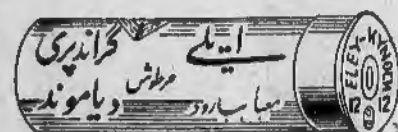 ایلے گراند پری
خرطوش دیاموند
معبا بارود
ELEX-KYNOCH
12 12